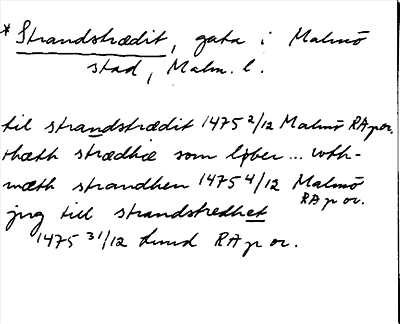 * Strandstrædit, gata i Malmö
stad, Malm. l.
til strandstrædit 1475 2/12 Malmö RA p or.
thæth strædhæ som løber ... wth-
mæth strandhen 1475 4/12 Malmö
RA p or.
jng till strandstredhet
1475 31/12 Lund RA p or.